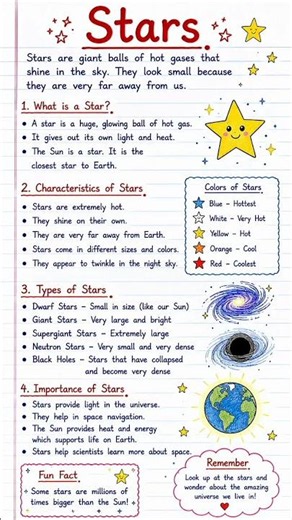 Stars
Stars are giant balls of hot gases that
shine in the sky. They look small because
they are very far away from us.
1. What is a Star?
• A star is a huge, glowing ball of hot gas.
• It gives out its own light and heat.
• The Sun is a star. It is the
closest star to Earth.
2. Characteristics of Stars
• Stars are extremely hot.
• They shine on their own.
• They are very far away from Earth.
• Stars come in different sizes and colors.
• They appear to twinkle in the night sky.
Colors of Stars
Blue - Hottest
White - Very Hot
Yellow - Hot
Orange - Cool
Red - Coolest
3. Types of Stars
• Dwarf Stars - Small in size (like our Sun)
• Giant Stars - Very large and bright
• Supergiant Stars - Extremely large
• Neutron Stars - Very small and very dense
• Black Holes - Stars that have collapsed
and become very dense
4. Importance of Stars
• Stars provide light in the universe.
• They help in space navigation.
• The Sun provides heat and energy
which supports life on Earth.
• Stars help scientists learn more about space.
Fun Fact
Some stars are millions of
times bigger than the Sun!
Remember
Look up at the stars and
wonder about the amazing
universe we live in!